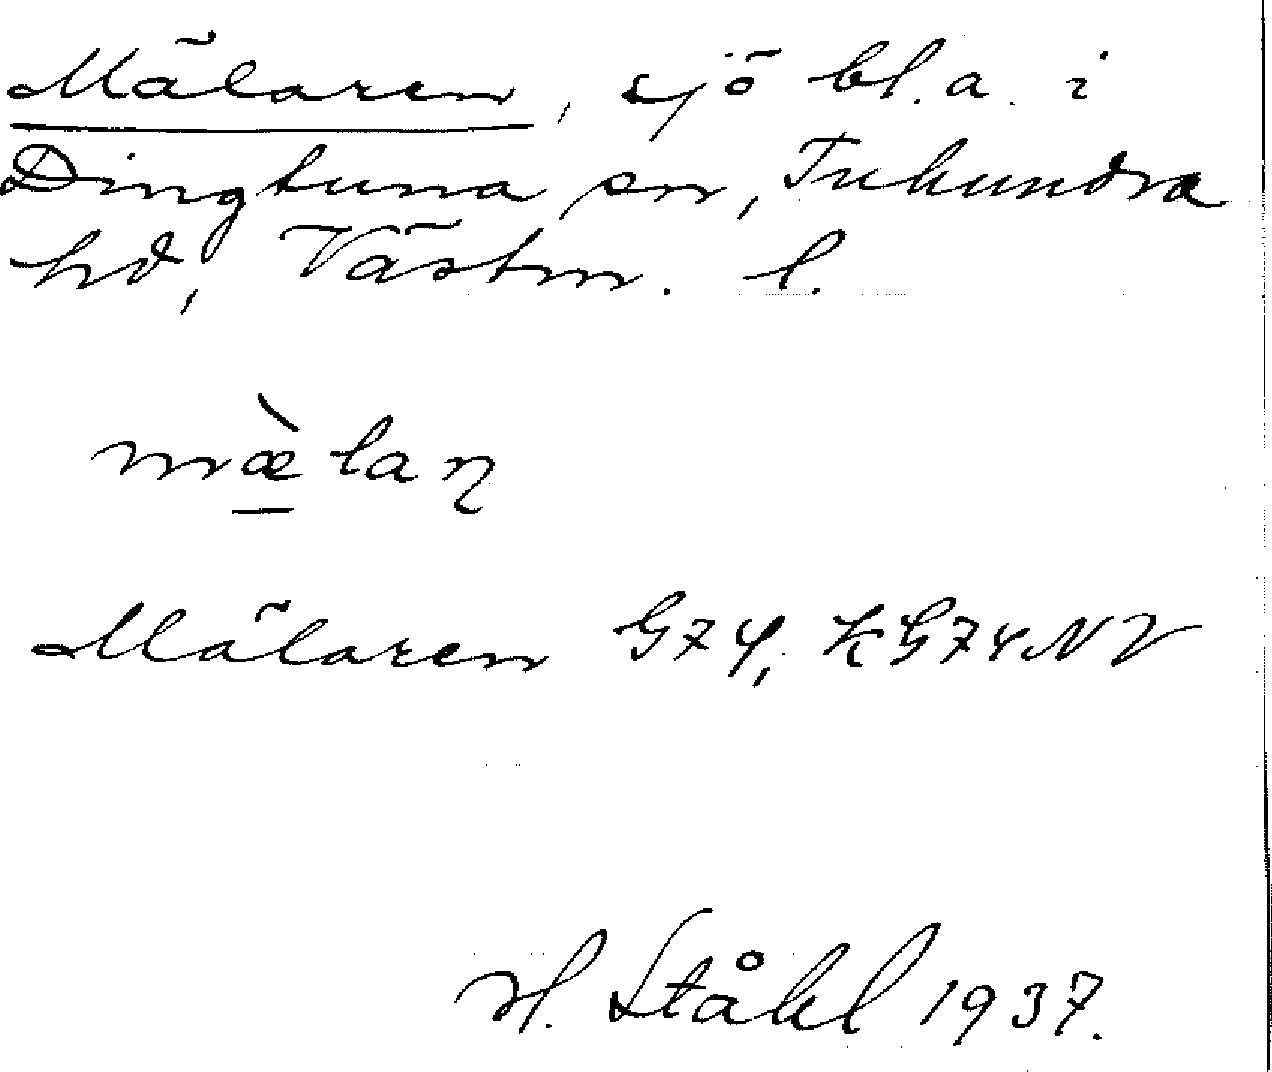 Mälaren, sjö bl.a. i
Dingtuna sn, Tuhundra
hd, Västm. l.
mæ̀laɳ
Mälaren G74, KG74NV
H. Ståhl 1937.